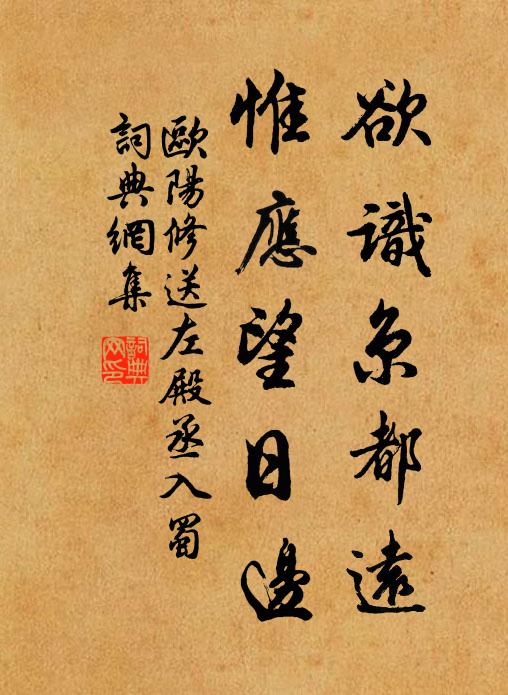 欲識京都遠
惟應望日邊
歐陽修送左殿丞入蜀
詞典網集
詞典
网印